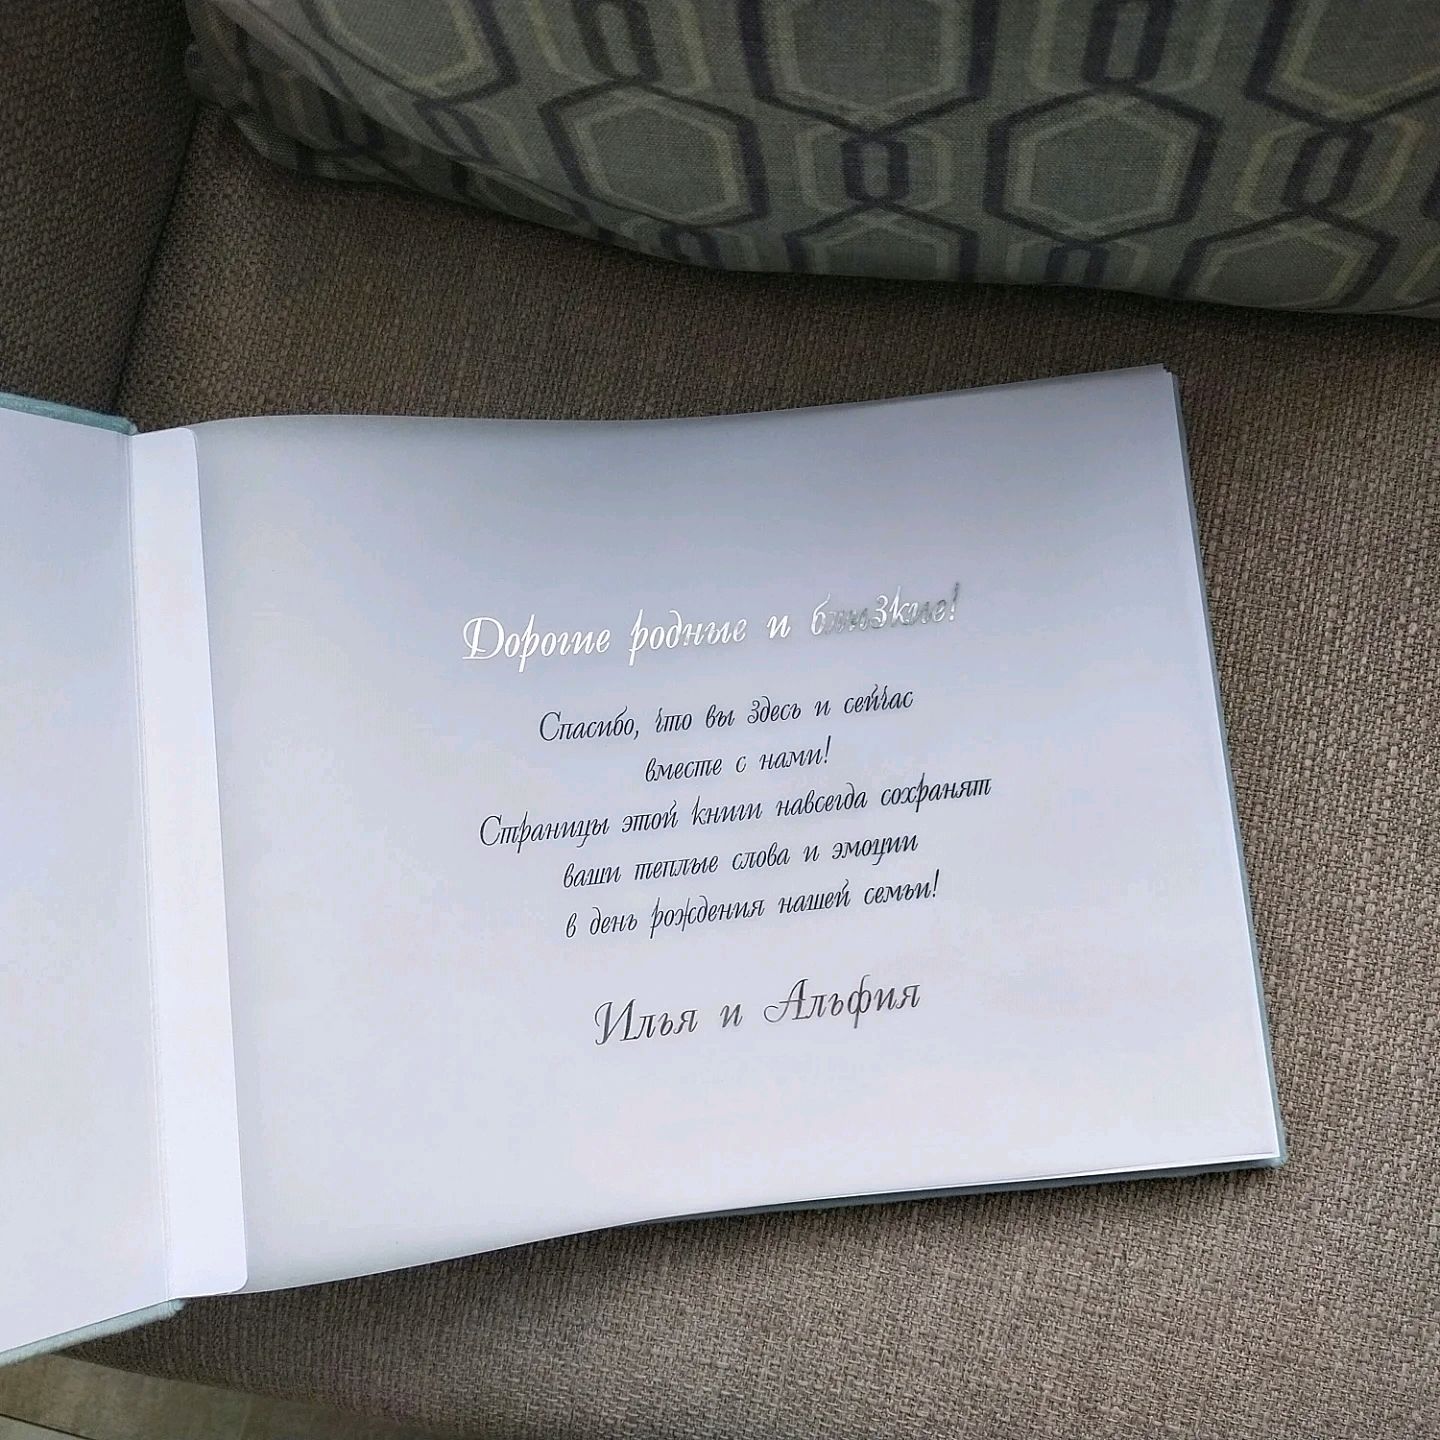 Дорогие родные и близкие!
Спасибо, что вы здесь и сейчас
вместе с нами!
Страницы этой книги навсегда сохранят
ваши теплые слова и эмоции
в день рождения нашей семьи!
Илья и Альфия